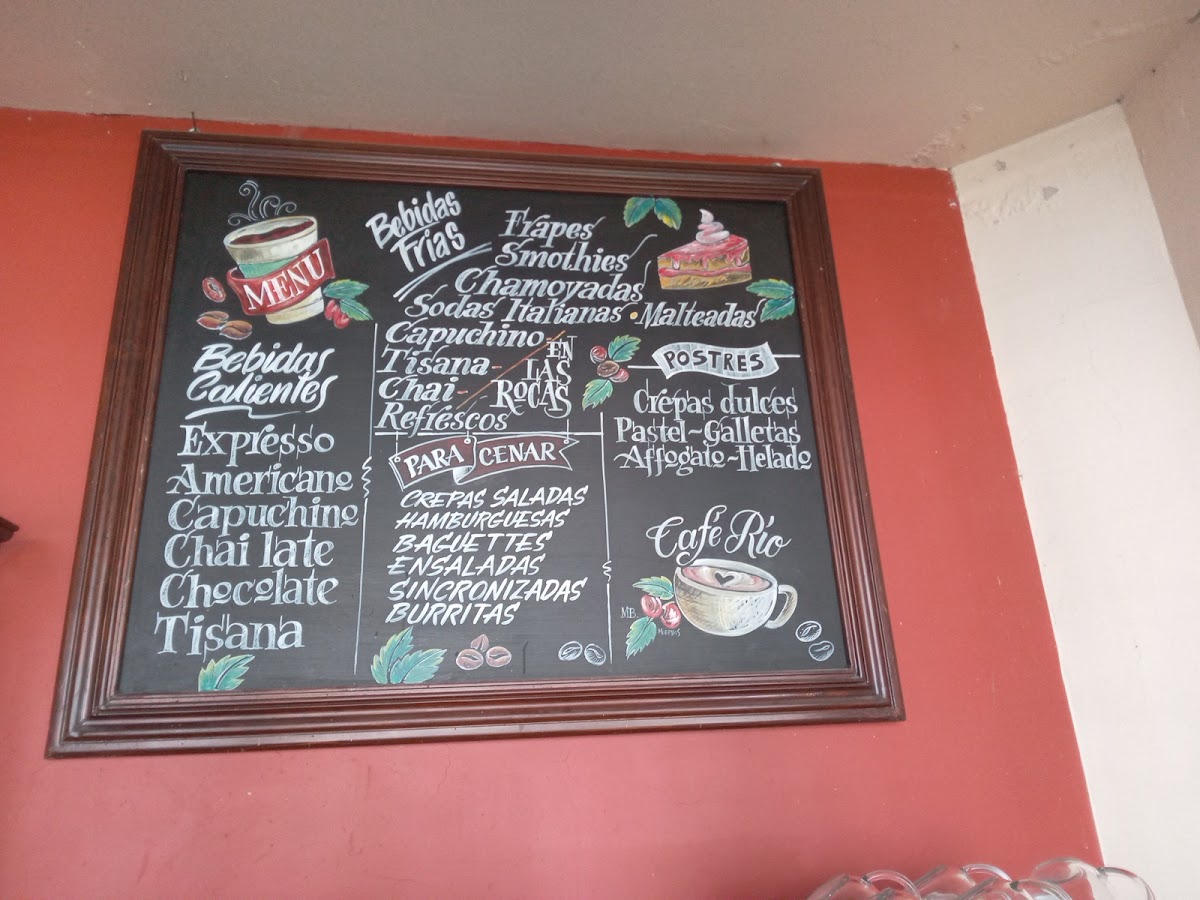 MENU
Bebidas
Calientes
Expresso
Americano
Capuchino
Chai late
Chocolate
Tisana
Bebidas
Frías
Frapes
Smothies
Chamoyadas
Sodas Italianas • Malteadas
Capuchino
Tisana-
Chai-
Refrescos
EN
LAS
ROCAS
PARA CENAR
CREPAS SALADAS
HAMBURGUESAS
BAGUETTES
ENSALADAS
SINCRONIZADAS
BURRITAS
POSTRES
Crepas dulces
Pastel~Galletas
Affogato~Helado
Café Río
MB.